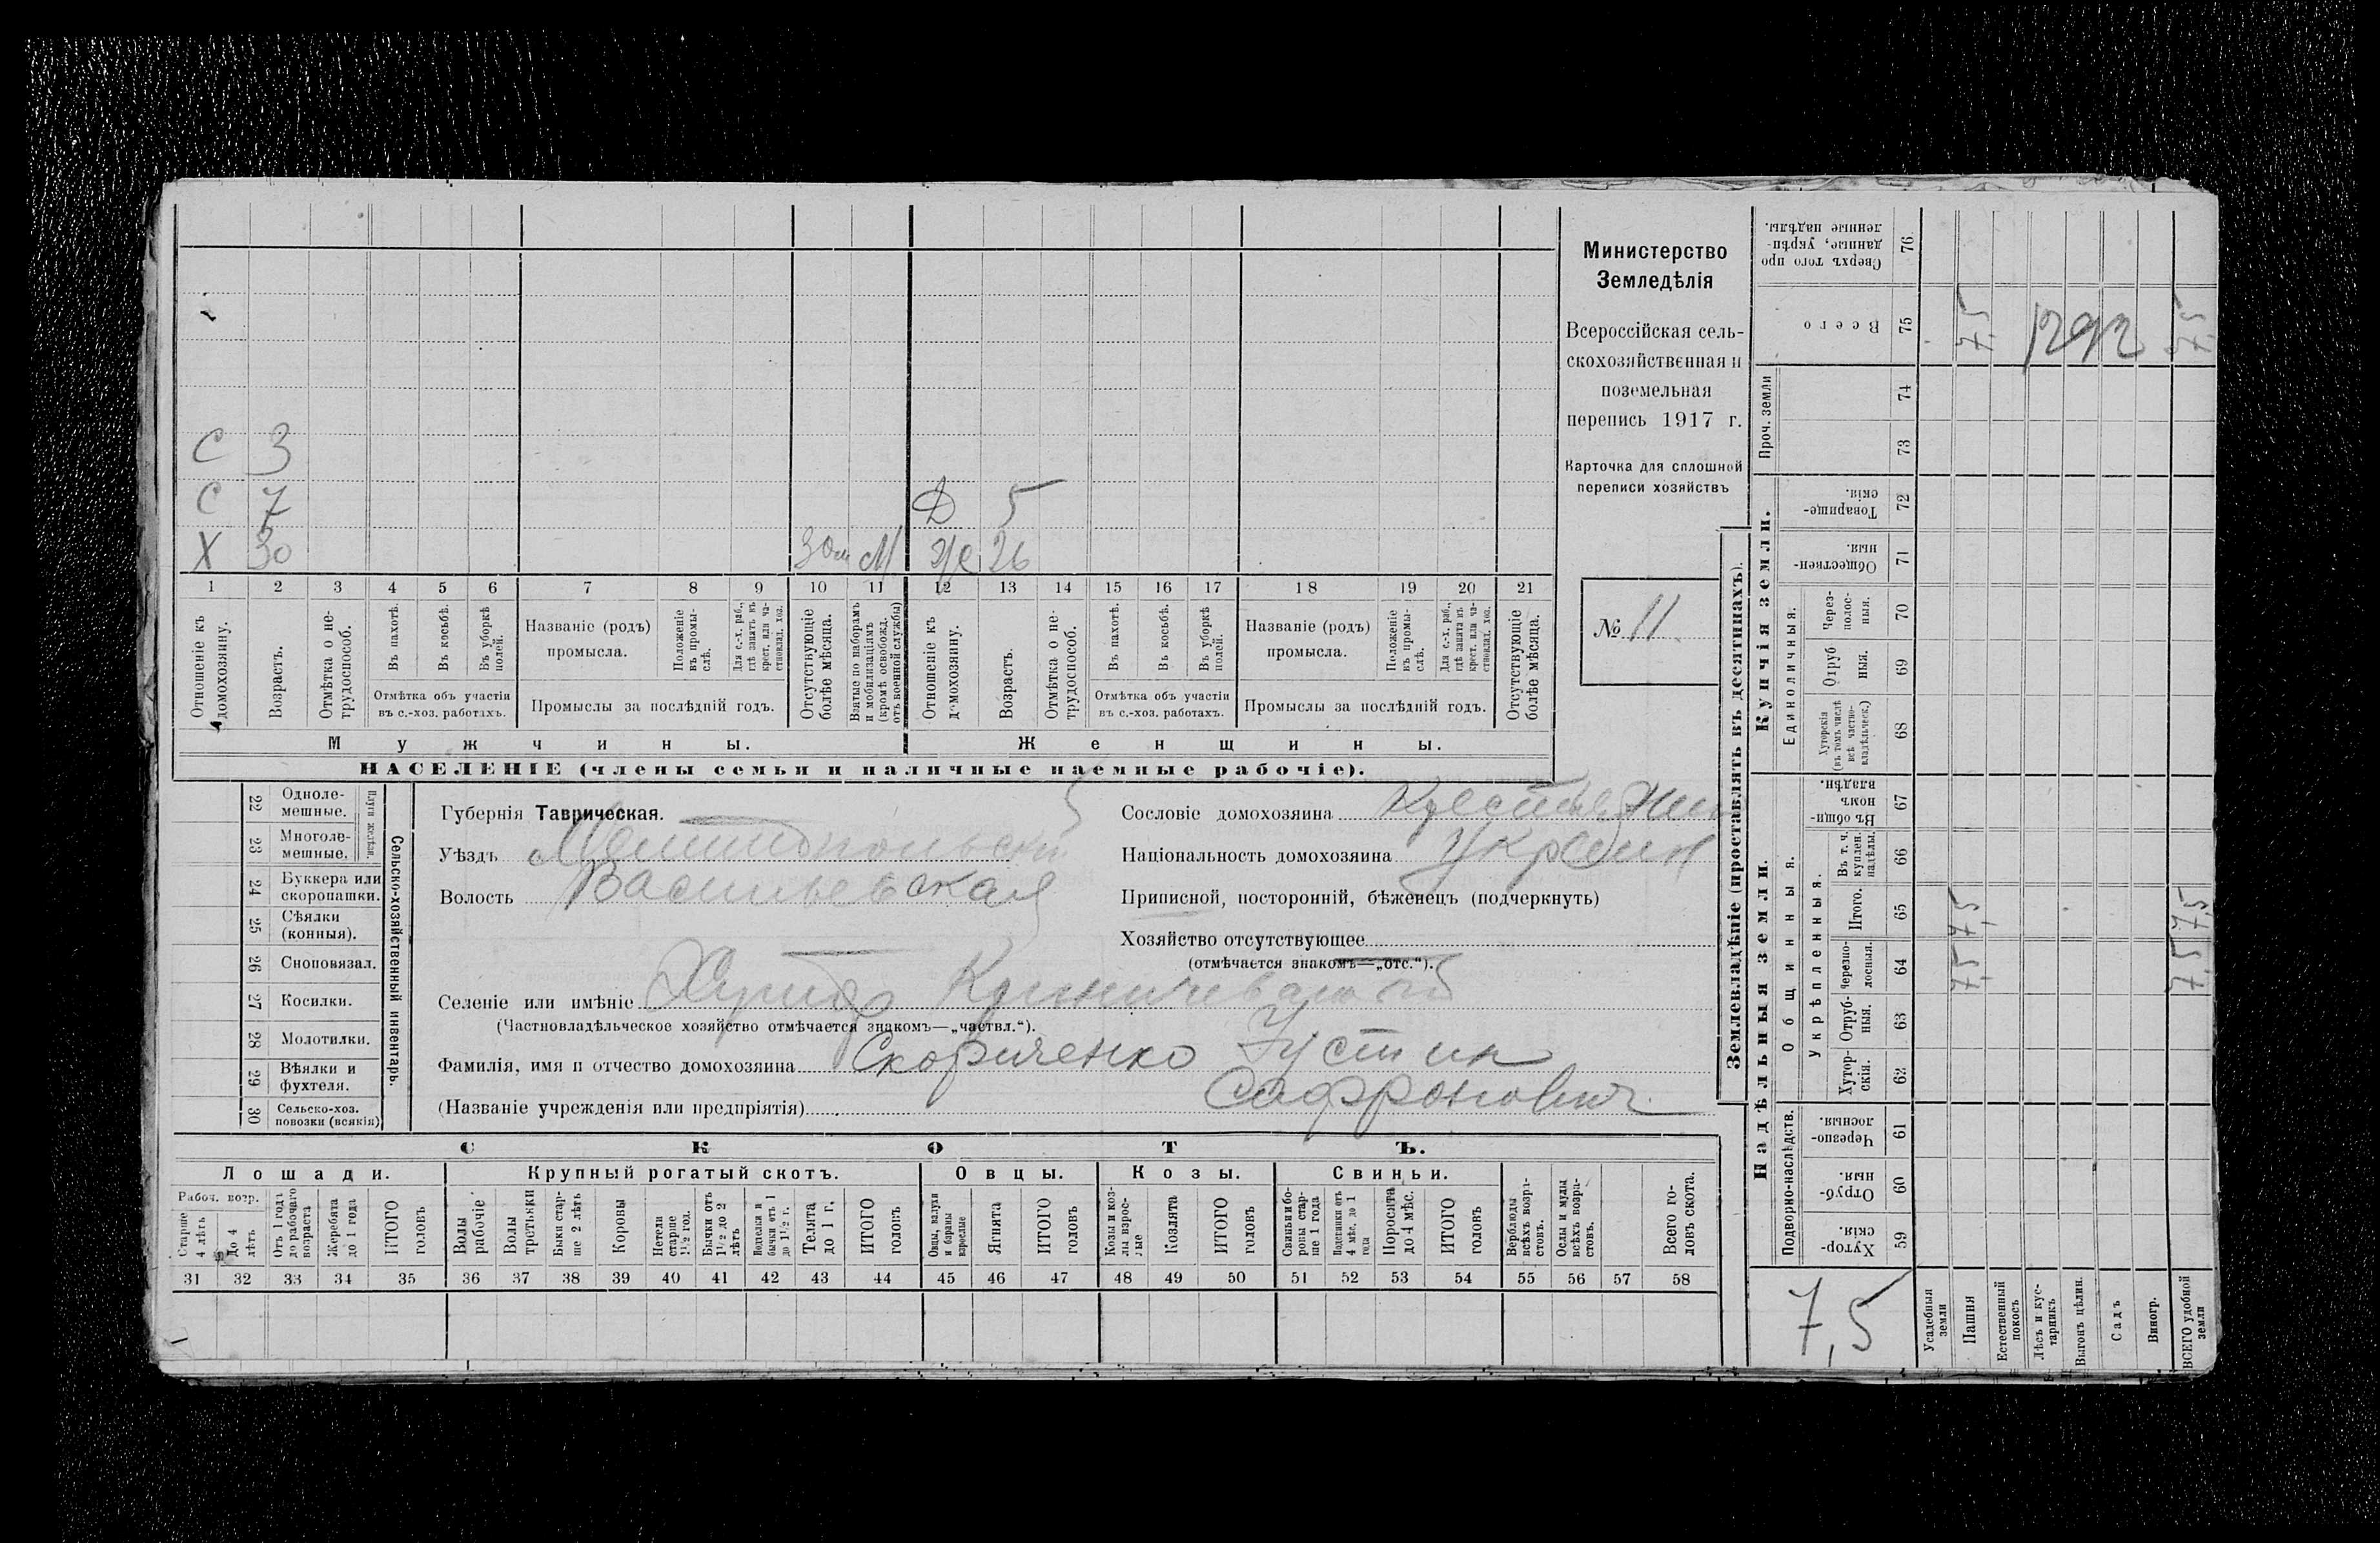 Министерство
Земледѣлія
Всероссійская сель-
скохозяйственная и
поземельная
перепись 1917 г.
Карточка для сплошной
переписи хозяйствъ
№ 11.
С 3
С 7 Д 5
Х 30 М Ж 26
1 2 3 4 5 6 7 8 9 10 11 12 13 14 15 16 17 18 19 20 21
Отношеніе къ домохозяину.
Возрастъ.
Отмѣтка о не-
трудоспособ.
Въ пахотѣ.
Въ косьбѣ.
Въ уборкѣ
полей.
Отмѣтка объ участіи
въ с.-хоз. работахъ.
Названіе (родъ)
промысла.
Положеніе
въ промы-
слѣ.
Для с.-х. раб.,
гдѣ занятъ въ
крест. или ча-
стновлад. хоз.
Промыслы за послѣдній годъ.
Отсутствующіе
болѣе мѣсяца.
Взятые по наборамъ
и мобилизаціямъ
(кромѣ освобожд.
отъ военной службы)
Отношеніе къ
домохозяину.
Возрастъ.
Отмѣтка о не-
трудоспособ.
Въ пахотѣ.
Въ косьбѣ.
Въ уборкѣ
полей.
Отмѣтка объ участіи
въ с.-хоз. работахъ.
Названіе (родъ)
промысла.
Положеніе
въ промы-
слѣ.
Для с.-х. раб.,
гдѣ занята въ
крест. или ча-
стновлад. хоз.
Промыслы за послѣдній годъ.
Отсутствующіе
болѣе мѣсяца.
Мужчины. Женщины.
НАСЕЛЕНІЕ (члены семьи и наличные наемные рабочіе).
22 Одноле-
мешные.
23 Многоле-
мешные.
Плуги желѣзн.
24 Буккера или
скоропашки.
25 Сѣялки
(конныя).
26 Сноповязал.
27 Косилки.
28 Молотилки.
29 Вѣялки и
фухтеля.
30 Сельско-хоз.
повозки (всякія)
Сельско-хозяйственный инвентарь.
Губернія Таврическая.
Уѣздъ
Волость Васильевская
Селеніе или имѣніе Хуторъ
(Частновладѣльческое хозяйство отмѣчается знакомъ—„частвл.“).
Фамилія, имя и отчество домохозяина Устин
Сафронович
(Названіе учрежденія или предпріятія)
Сословіе домохозяина
Національность домохозяина
Приписной, посторонній, бѣженецъ (подчеркнуть)
Хозяйство отсутствующее
(отмѣчается знакомъ—„отс.“).
СКОТЪ.
Лошади. Крупный рогатый скотъ. Овцы. Козы. Свиньи.
Рабоч. возр.
Старше
4 лѣтъ
До 4
лѣтъ
Отъ 1 года
до рабочаго
возраста
Жеребята
до 1 года
ИТОГО
головъ
Волы
рабочіе
Волы
третьяки
Быки стар-
ше 2 лѣтъ
Коровы
Нетели
старше
1½ год.
Бычки отъ
1½ до 2
лѣтъ
Подтелки и
бычки отъ 1
до 1½ г.
Телята
до 1 г.
ИТОГО
головъ
Овцы, валухи
и бараны
взрослые
Ягнята
ИТОГО
головъ
Козы и коз-
лы взрос-
лые
Козлята
ИТОГО
головъ
Свиньи и бо-
ровы стар-
ше 1 года
Подсвинки отъ
4 мѣс. до 1
года
Поросята
до 4 мѣс.
ИТОГО
головъ
Верблюды
всѣхъ возра-
стовъ.
Ослы и мулы
всѣхъ возра-
стовъ.
Всего го-
ловъ скота.
31 32 33 34 35 36 37 38 39 40 41 42 43 44 45 46 47 48 49 50 51 52 53 54 55 56 57 58
Землевладѣніе (проставлять въ десятинахъ).
Надѣльныя земли. Купчія земли.
Подворно-наслѣдств.
Общинныя.
Укрѣпленныя.
Единоличныя.
Проч. земли
Хутор-
скія. 59
Отруб-
ныя. 60
Черезпо-
лосныя. 61
Хутор-
скія. 62
Отруб-
ныя. 63
Черезпо-
лосныя. 64
Итого. 65
Въ т. ч.
куплен.
надѣлы. 66
Въ общин-
номъ
владѣн. 67
Хуторскія
(въ томъ числѣ
всѣ частно-
владѣльческ.) 68
Отруб
ныя. 69
Через-
полос-
ныя. 70
Обществен-
ныя. 71
Товарище-
скія. 72
73
74
Всего 75
Сверхъ того про
данные, укрѣп-
ленные надѣлы. 76
7,5
Усадебныя
земли
Пашня 7,5 7,5 7,5
Естественный
покосъ
Лѣсъ и кус-
тарникъ
Выгонъ цѣлин.
Садъ
Виногр.
ВСЕГО удобной
земли 7,5 7,5 7,5